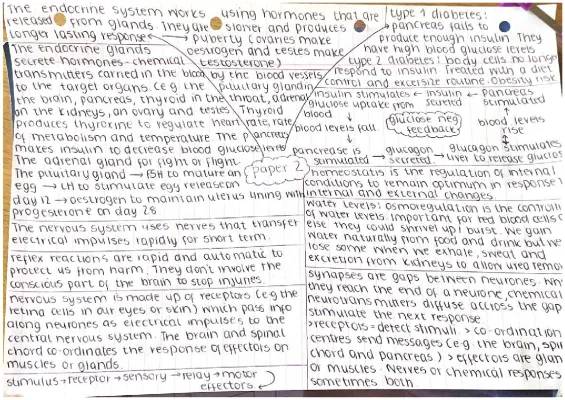 The endocrine system works using hormones that are
released from glands. They are slower and produces
longer lasting response
puberty (ovaries make
oestrogen and testes make
testosterone)
The endocrine glands
secrete hormones - chemical
transmitters carried in the blood by the blood vessels
to the target organs. (e.g the pituitary gland in
the brain, pancreas, thyroid in the throat, adrenal
on the kidneys, an ovary and testes. Thyroid
produces thyroxine to regulate heart rate, rate
of metabolism and temperature. The pancreas
makes insulin to decrease blood glucose levels
The adrenal gland for fight or flight.
The pituitary gland → FSH to mature an
egg → LH to stimulate egg release on
day 12 → oestrogen to maintain uterus lining with
progesterone on day 28
The nervous system uses nerves that transfer
electrical impulses rapidly for short term.
reflex reactions are rapid and automatic to
protect us from harm. They don't involve the
conscious part of the brain to stop injuries.
nervous system is made up of receptors (e.g the
retina cells in our eyes or skin) which pass info
along neurones as electrical impulses to the
central nervous system. The brain and spinal
chord co-ordinates the response of effectors on
muscles or glands.
stimulus → receptor → sensory → relay → motor
effectors
paper 2
type 1 diabetes:
pancreas fails to
produce enough insulin. They
have high blood glucose levels
type 2 diabetes: body cells no longer
respond to insulin. Treated with a diet
control and excersize routine. Obesity risk
insulin stimulates ← insulin ← pancreas
glucose uptake from secreted stimulated
blood
blood levels fall
glucose neg
feedback
blood levels
rise
pancreas is → glucagon glucagon stimulates
stimulated secreted → liver to release glucose
homeostasis is the regulation of internal
conditions to remain optimum in response
internal and external changes.
water levels: osmoregulation is the control
of water levels. Important for red blood cells
else they could shrivel up / burst. We gain
water naturally from food and drink but we
lose some when we exhale, sweat and
excretion from kidneys to allow urea
synapses are gaps between neurones.
they reach the end of a neurone, chemical
neurotransmitters diffuse across the gap
stimulate the next response
>receptors = detect stimuli > co-ordination
centres send messages (e.g the brain,
chord and pancreas) > effectors are
or muscles. Nerves or chemical responses
sometimes both